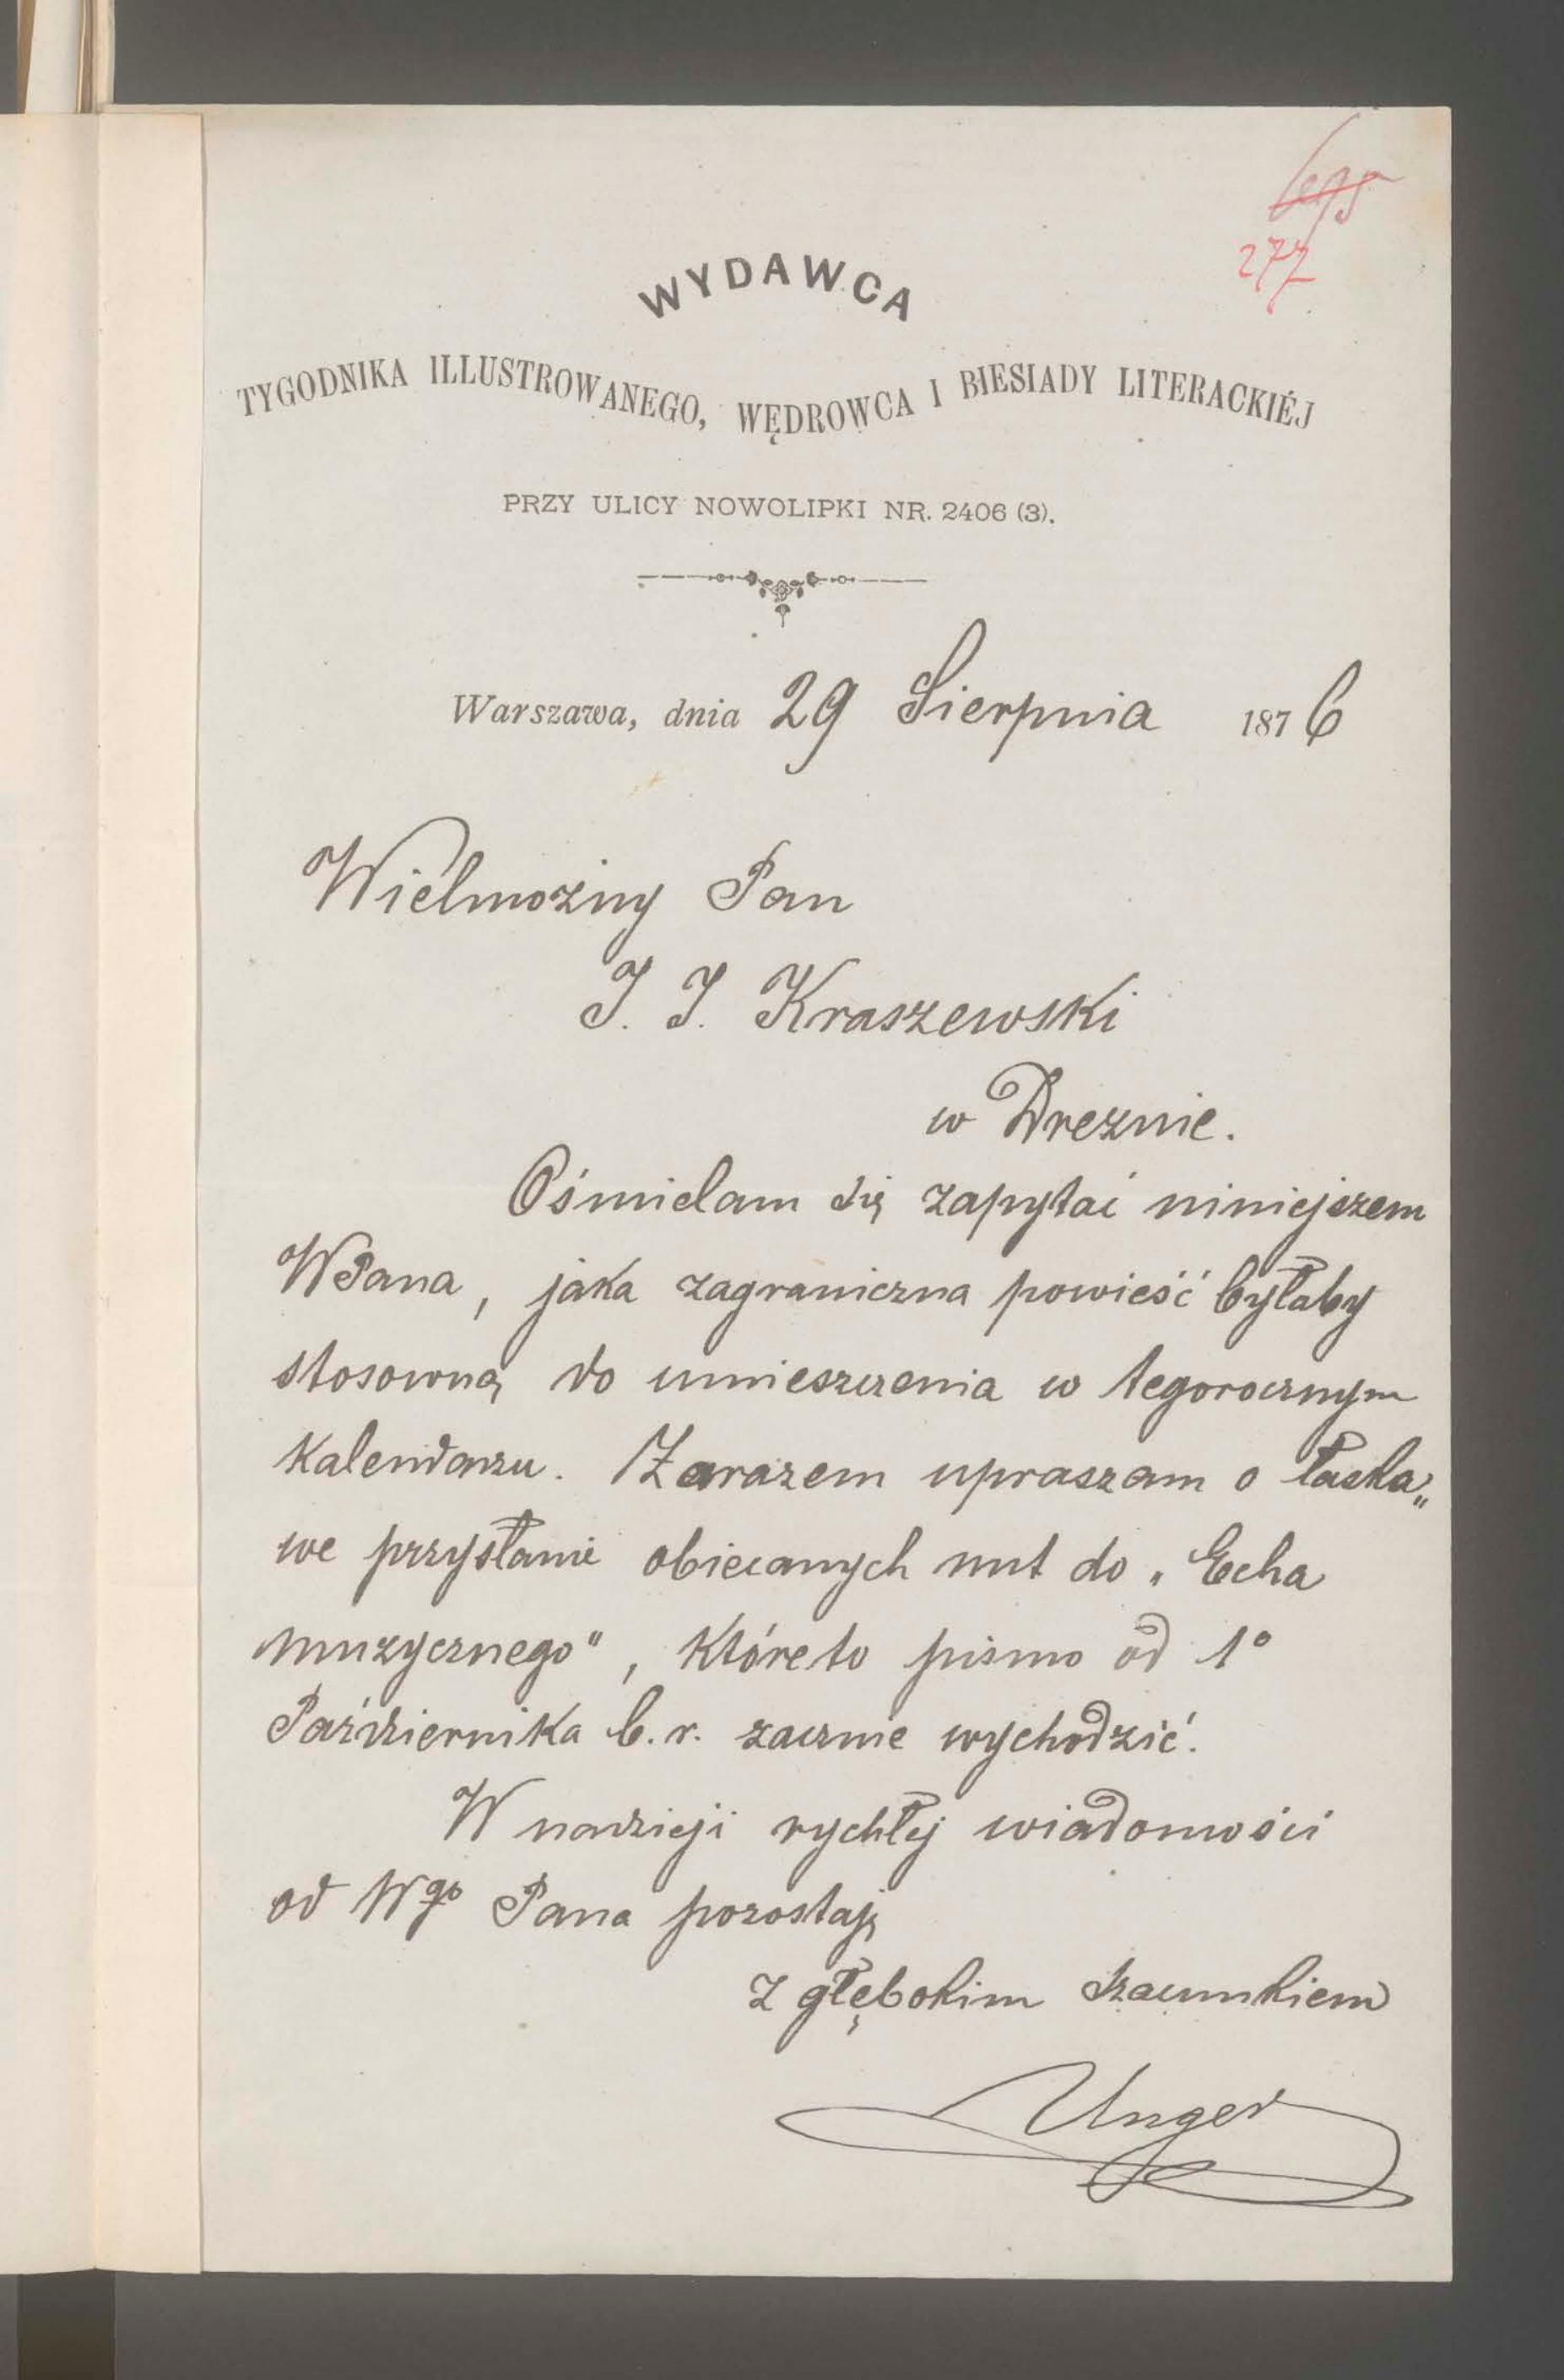 277
WYDAWCA
TYGODNIKA ILLUSTROWANEGO, WĘDROWCA I BIESIADY LITERACKIÉJ
PRZY ULICY NOWOLIPKI NR. 2406 (3).
Warszawa, dnia 29 Sierpnia 1876
Wielmożny Pan
J. J. Kraszewski
w Dreznie.
Ośmielam się zapytać niniejszem
WPana, jaka zagraniczna powieść byłaby
stosowną do umieszczenia w tegorocznym
Kalendarzu. Zarazem upraszam o łaska„
we przysłanie obiecanych nut do „Echa
muzycznego", któreto pismo od 1º
Października b. r. zacznie wychodzić.
W nadzieji rychłej wiadomości
od Wgo Pana pozostaję
z głębokim szacunkiem
Unger